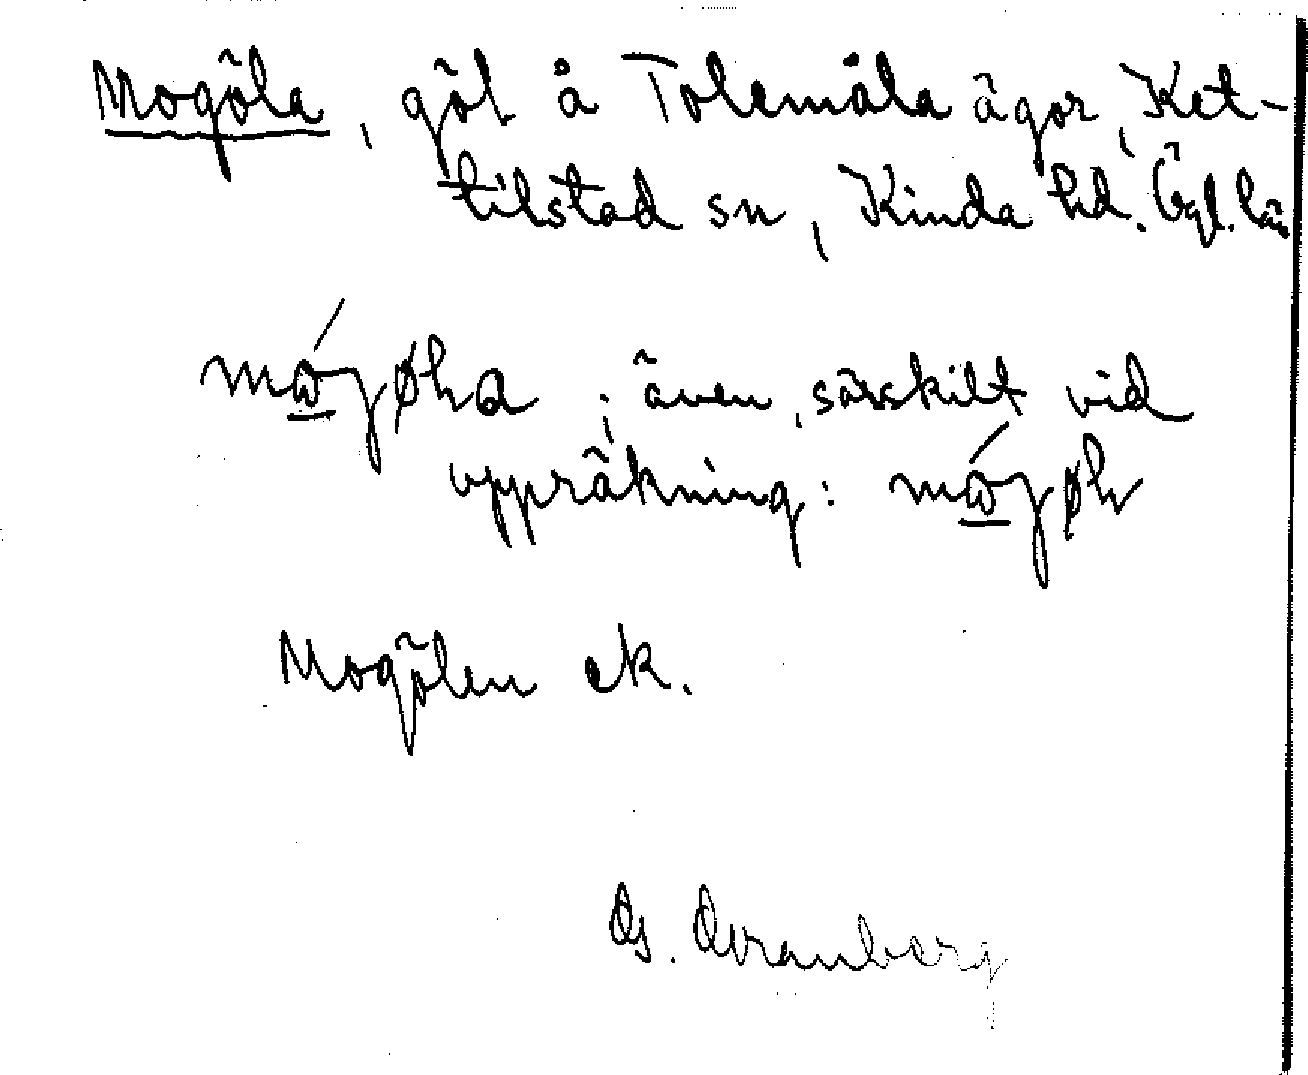 Mogöla, göl å Tolemåla ägor, Ket-
tilstad sn, Kinda hd. Ögl. län
; även, särskilt vid
uppräkning:
Mogölen ek.
G. Granberg